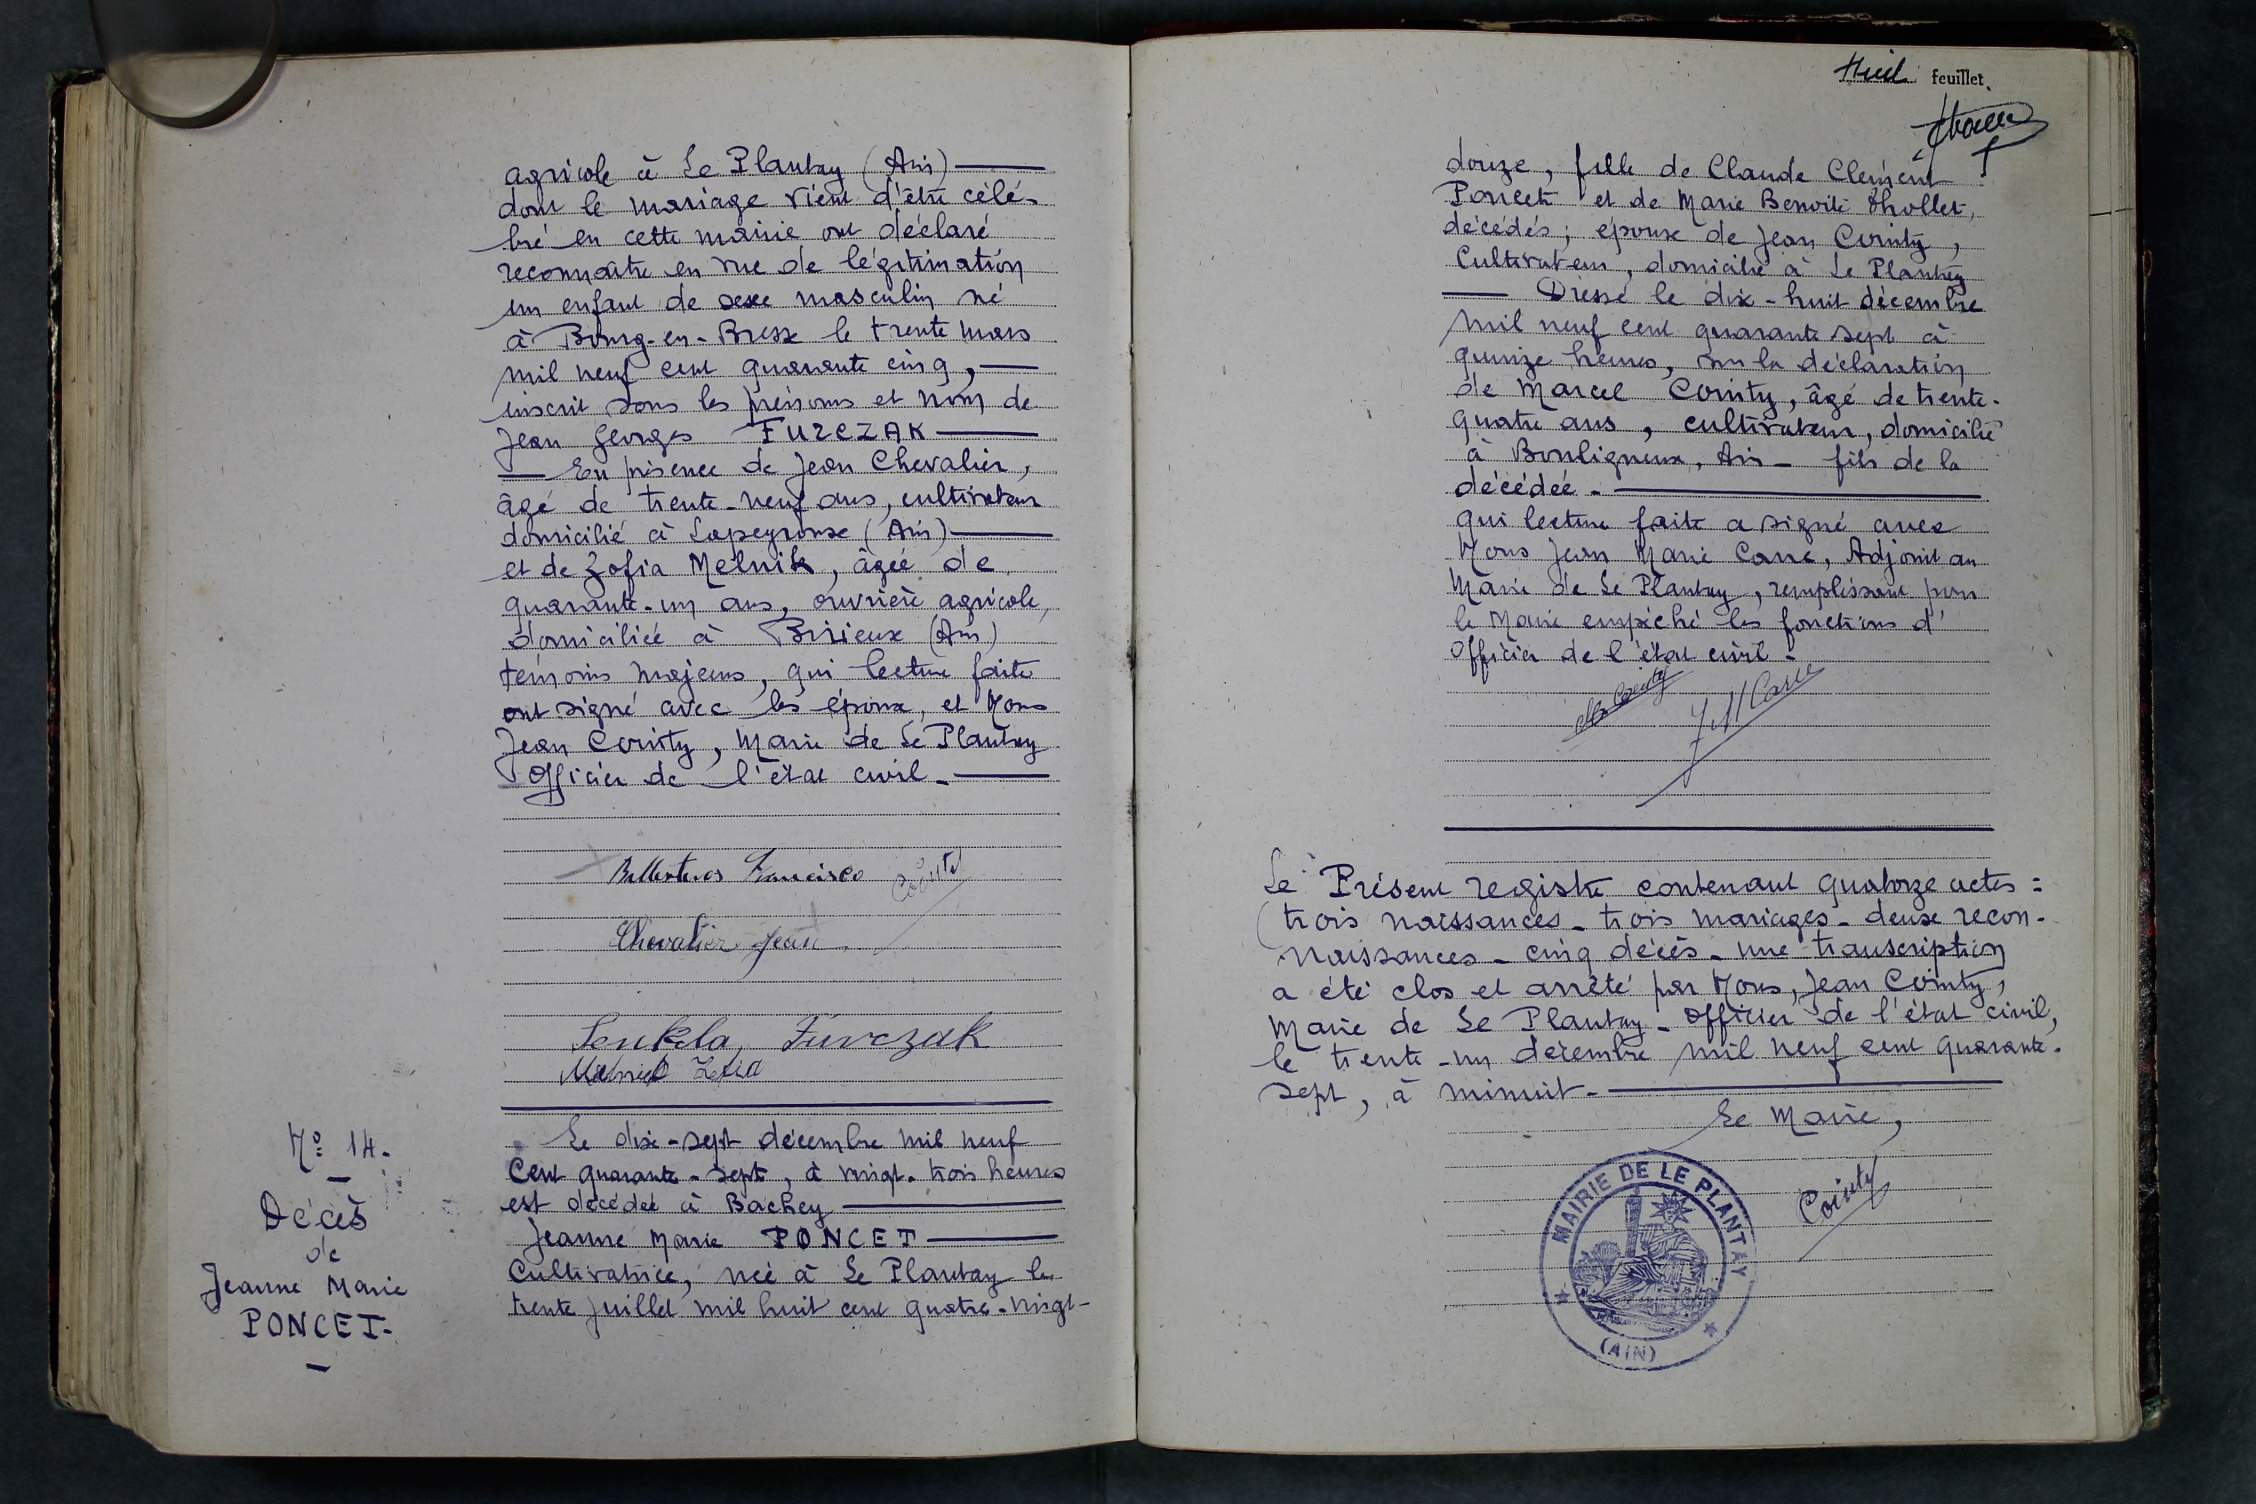 agricole à Le Plantay (Ain)
dont le mariage vient d'être célé-
bré en cette mairie ont déclaré
reconnaître en vue de légitimation
un enfant de sexe masculin né
à Bourg-en-Bresse le trente mars
mil neuf cent quarante cinq,
inscrit sous les prénoms et nom de
Jean Georges FURCZAK
En présence de Jean Chevalier,
âgé de trente-neuf ans, cultivateur
domicilié à Lapeyrouse (Ain)
et de Zofia Melnik, âgée de
quarante-un ans, ouvrière agricole,
domiciliée à Birieux (Ain)
témoins majeurs, qui lecture faite
ont signé avec les époux, et Nous
Jean Cointy, Maire de Le Plantay
Officier de l'état civil.
Ballesteros Francisco Cointy
Chevalier Jean
Furczak
Zofia
N° 14.
Décès
de
Jeanne Marie
PONCET.
Le dix-sept décembre mil neuf
cent quarante-sept, à vingt-trois heures
est décédée à Bachey
Jeanne Marie PONCET
Cultivatrice, née à Le Plantay le
trente juillet mil huit cent quatre-vingt-
Huit feuillet.
douze, fille de Claude Clément
Poncet et de Marie Benoite Thollet,
décédés; épouse de Jean Cointy,
Cultivateur, domicilié à Le Plantay
Dressé le dix-huit décembre
mil neuf cent quarante sept à
quinze heures, sur la déclaration
de Marcel Cointy, âgé de trente-
quatre ans, cultivateur, domicilié
à Bouligneux, Ain - fils de la
décédée.
qui lecture faite a signé avec
Nous Jean Marie Carre, Adjoint au
Maire de Le Plantay, remplissant pour
le Maire empêché les fonctions d'
Officier de l'état civil.
Cointy J M Carre
Le Présent registre contenant quatorze actes:
(trois naissances - trois mariages - deux recon-
naissances - cinq décès - une transcription
a été clos et arrêté par Nous, Jean Cointy,
Maire de Le Plantay - Officier de l'état civil,
le trente-un décembre mil neuf cent quarante-
sept, à minuit.
Le Maire,
MAIRIE DE LE PLANTAY
(AIN)
Cointy